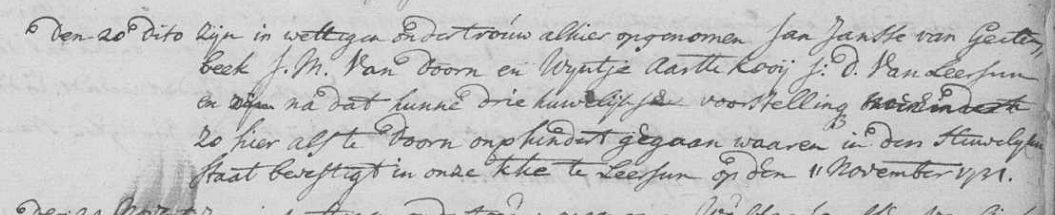 den 20 dito zijn in wettigen ondertrouw alhier opgenomen Jan Jansse van Geiten,
beek J. M. Van Doorn en Wijntje Aartse Kooij J: D. Van Leersum
en zijn na dat hunne drie huwelijkse voorstelling
zo hier als te Doorn onphindert gegaan waaren in den Huwelijken
Staat bevestigt in onze kke te Leersum op den 11 November 1731.